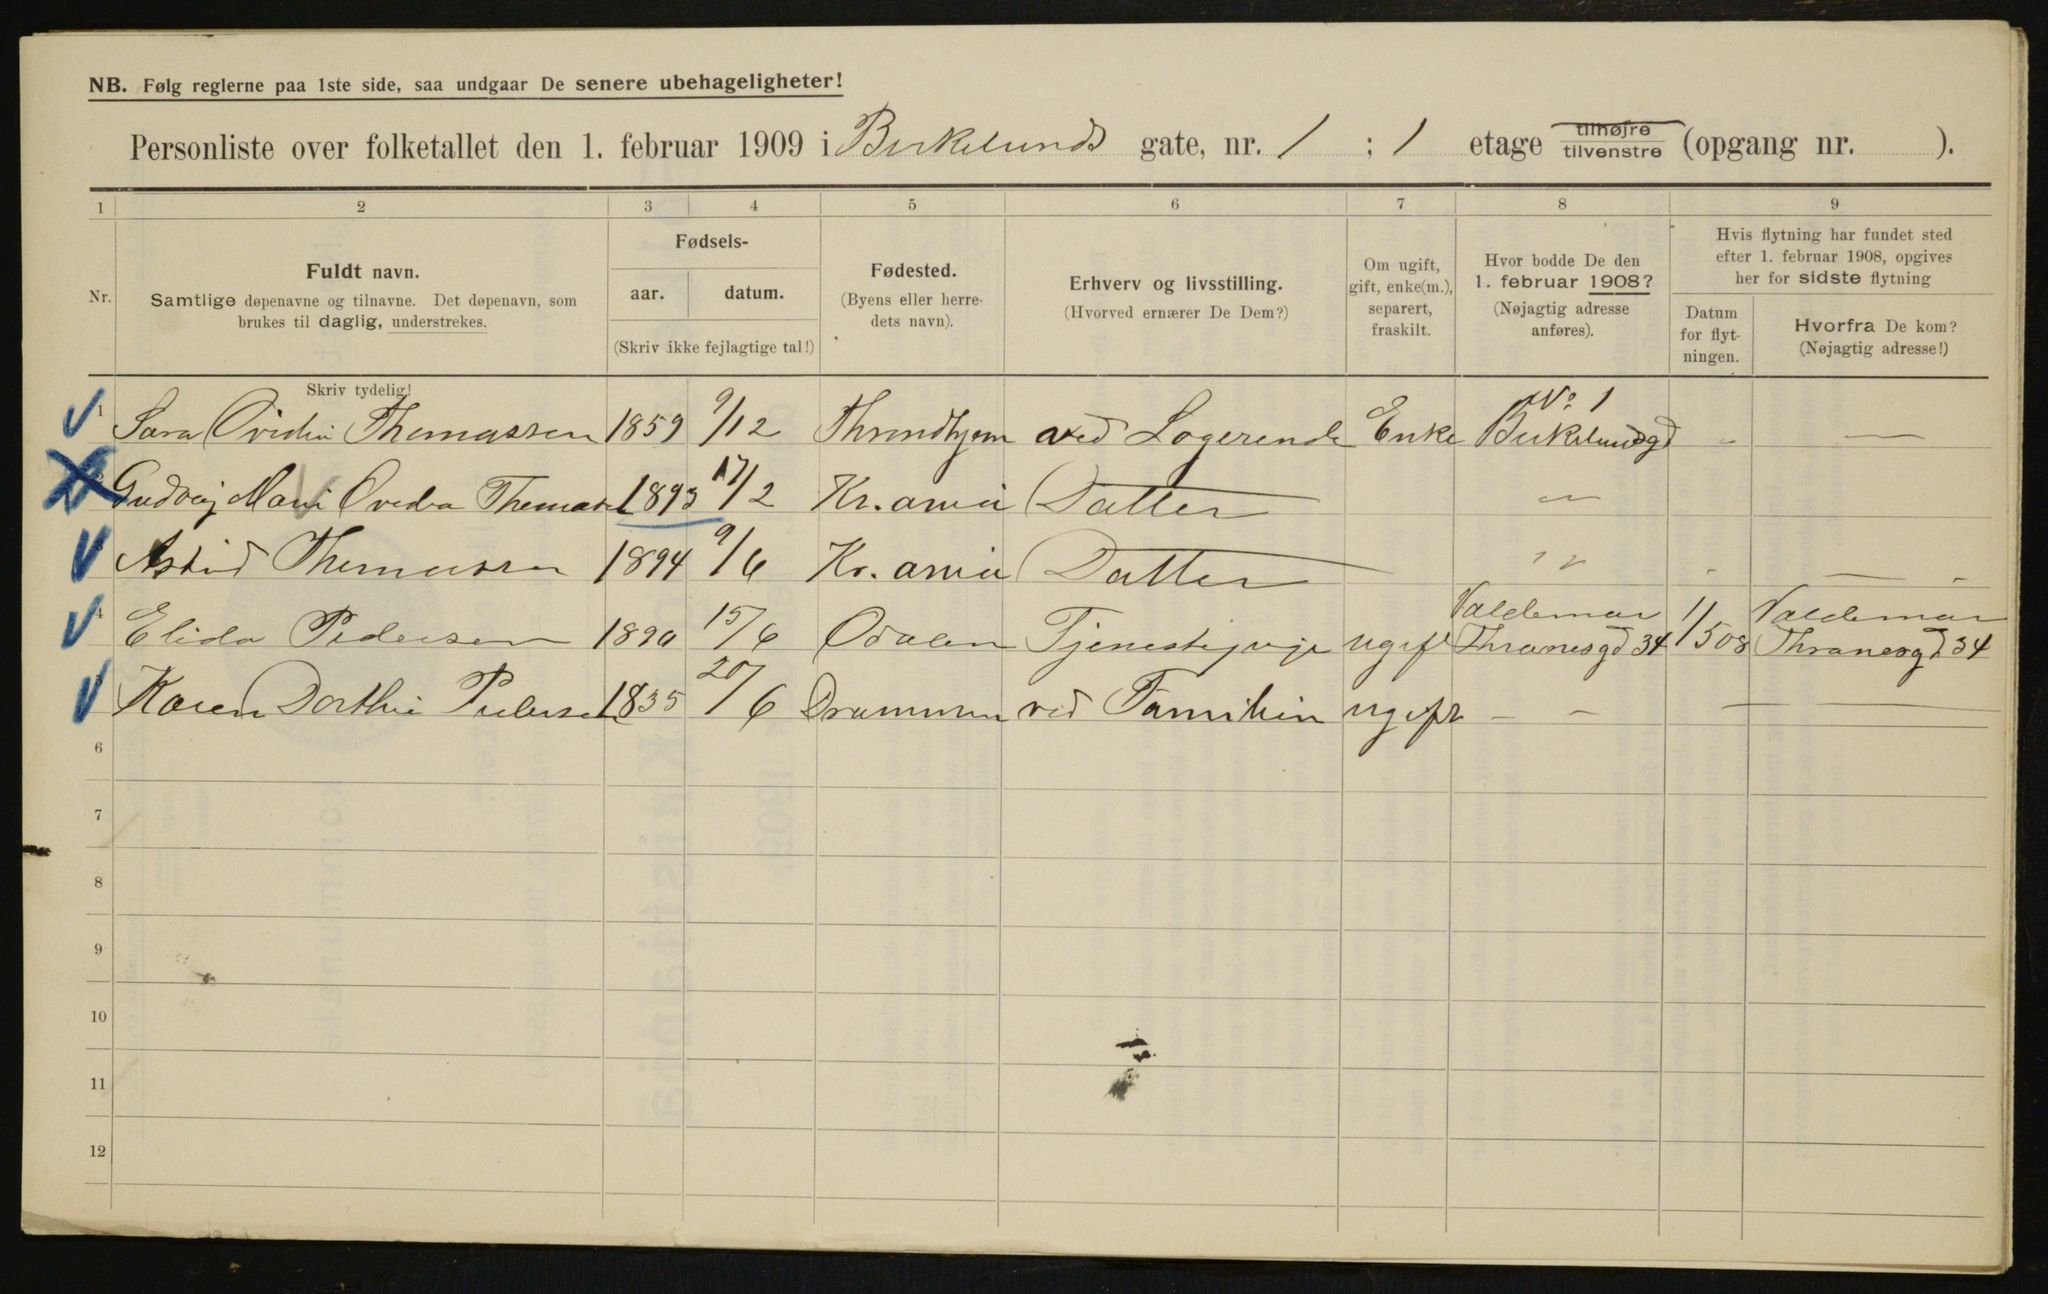 NB. Følg reglerne paa 1ste side, saa undgaar De senere ubehageligheter!
Personliste over folketallet den 1. februar 1909 i Birkelunds gate, nr. 1 ; 1 etage tilhøjre tilvenstre (opgang nr. ).
1 2 3 4 5 6 7 8 9
Nr.
Fuldt navn.
Samtlige døpenavne og tilnavne. Det døpenavn, som
brukes til daglig, understrekes.
Skriv tydelig!
Fødsels-
aar. datum.
(Skriv ikke fejlagtige tal!)
Fødested.
(Byens eller herre-
dets navn).
Erhverv og livsstilling.
(Hvorved ernærer De Dem?)
Om ugift,
gift, enke(m.),
separert,
fraskilt.
Hvor bodde De den
1. februar 1908?
(Nøjagtig adresse
anføres).
Hvis flytning har fundet sted
efter 1. februar 1908, opgives
her for sidste flytning
Datum
for flyt-
ningen.
Hvorfra De kom?
(Nøjagtig adresse!)
No 1
1 Sara Ovidia Thomassen 1859 9/12 Throndhjem ved Logerende Enke Birkelundsgd - —
Gudvig Marie Ovedia Thomassen 1893 17/2 Kr.ania Datter — " —
Astrid Thomassen 1894 9/6 Kr.ania Datter — " " - —
4 Elida Pedersen 1890 15/6 Odalen Tjenestepige ugift Valdemar Thranesgd 34 1/5 08 Valdemar Thranesgd 34
Karen Dorthie Pedersen 1835 20/6 Drammen ved Familien ugift - - — —
6
7
8
9
10
11
12